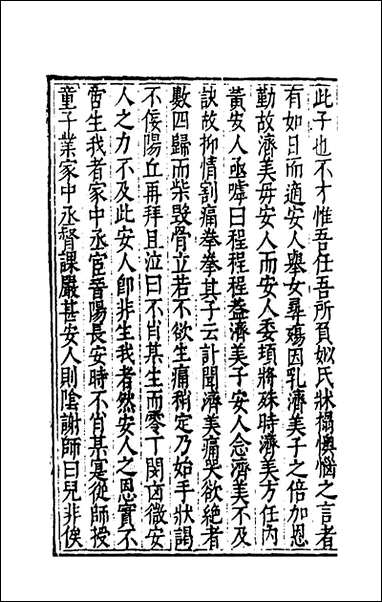 此子也不才惟吾任吾所負姒氏狀搨懊惱之言者
有如日而適安人舉女尋殤因乳濟美子之倍加恩
勤故濟美毋安人而安人委頓將殊時濟美方任內
黃安人亟嘑曰程程程葢濟美子安人念濟美不及
訣故抑情割痛拳拳其子云計聞濟美痛哭欲絕者
數四歸而柴毀骨立若不欲生痛稍定乃始手狀謁
不佞陽丘再拜且泣曰不肖某生而零丁閔凶微安
人之力不及此安人卽非生我者然安人之恩實不
啻生我者家中丞宦晉陽長安時不肖某寔從師授
童子業家中丞督課嚴甚安人則陰謝師曰兒非俟